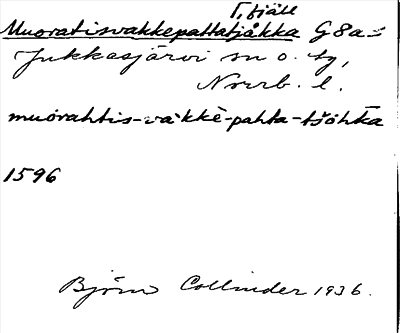 T, fjäll
Muoratisvakkepattatjåkka G8a:s
Jukkasjärvi sn o. tg,
Norrb. l.
muorahtis-vakkè-pahta-tšohka
1596
Björn Collinder 1936.